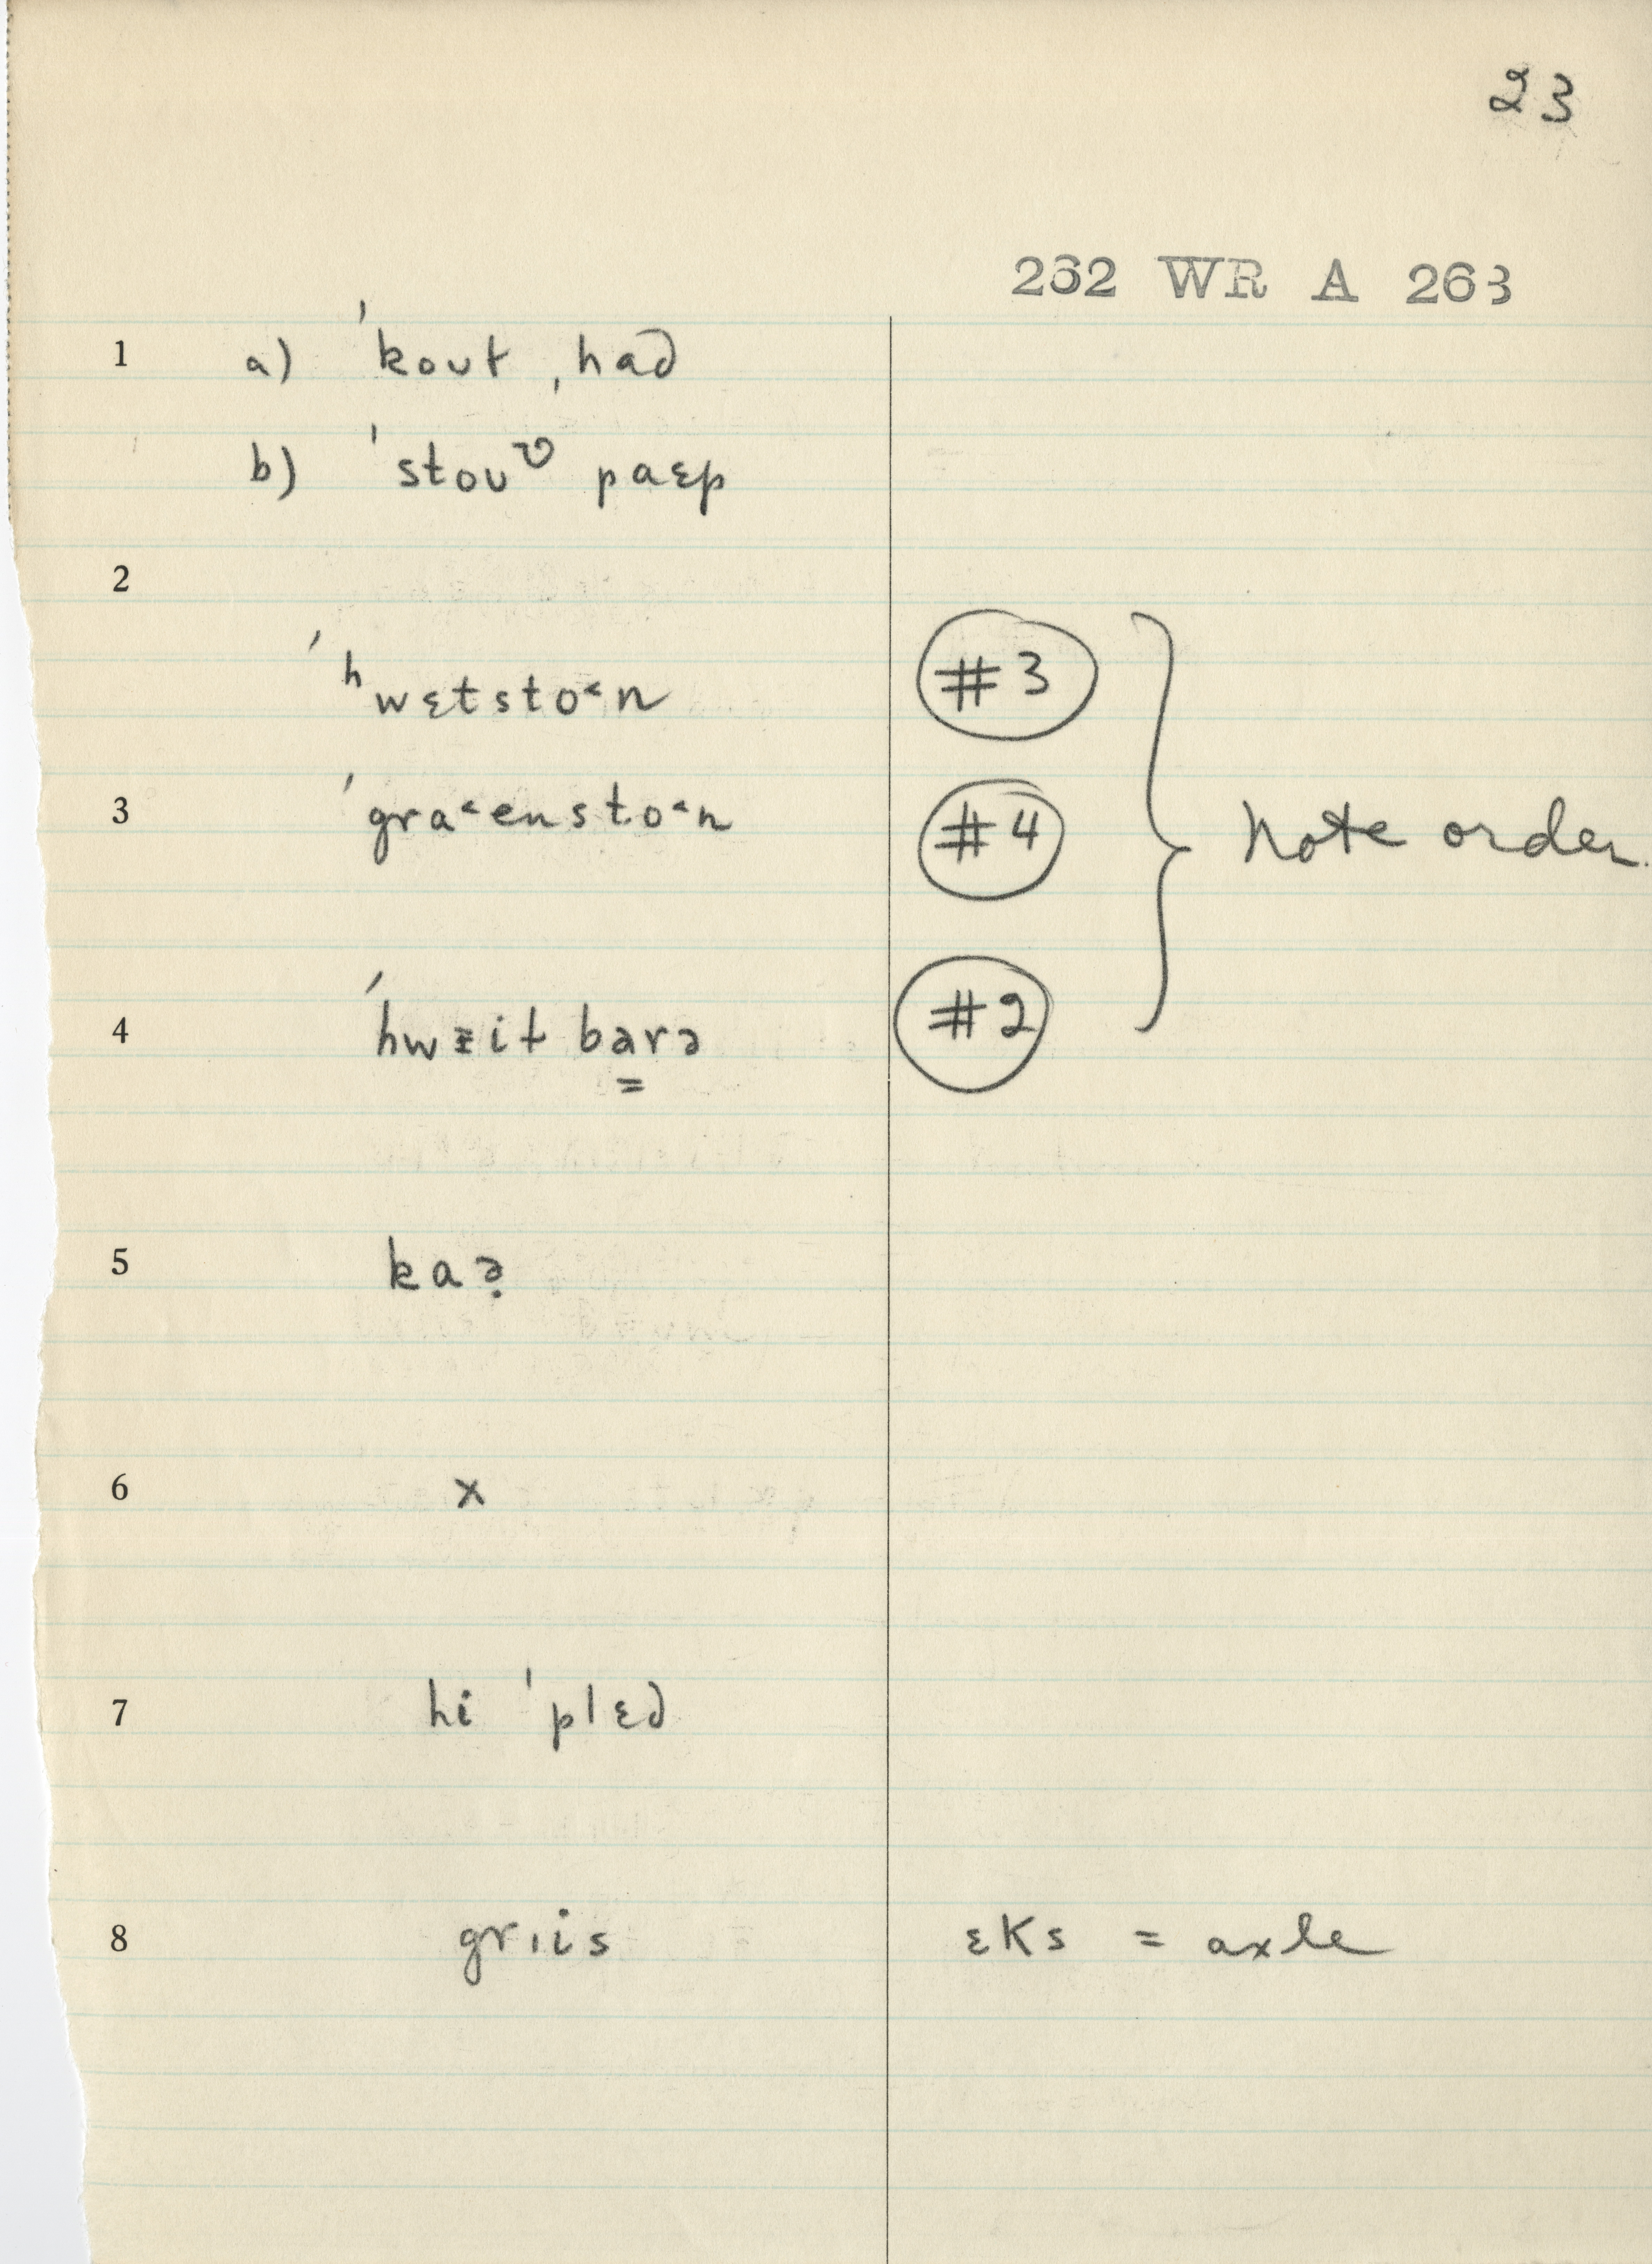 23
262 WR A 263
1 a) ˈkout ˌhaƋ
b) ˈstouᶹ paɛp
2
ˈʰwɛtsto˂n #3
3 ˈgra˂ensto˂n #4 } Note order.
4 ˈhwᵻit ba̳rə #2
5 kaə̣
6 x
7 hi ˈplɛd
8 grɩis ɛks = axle